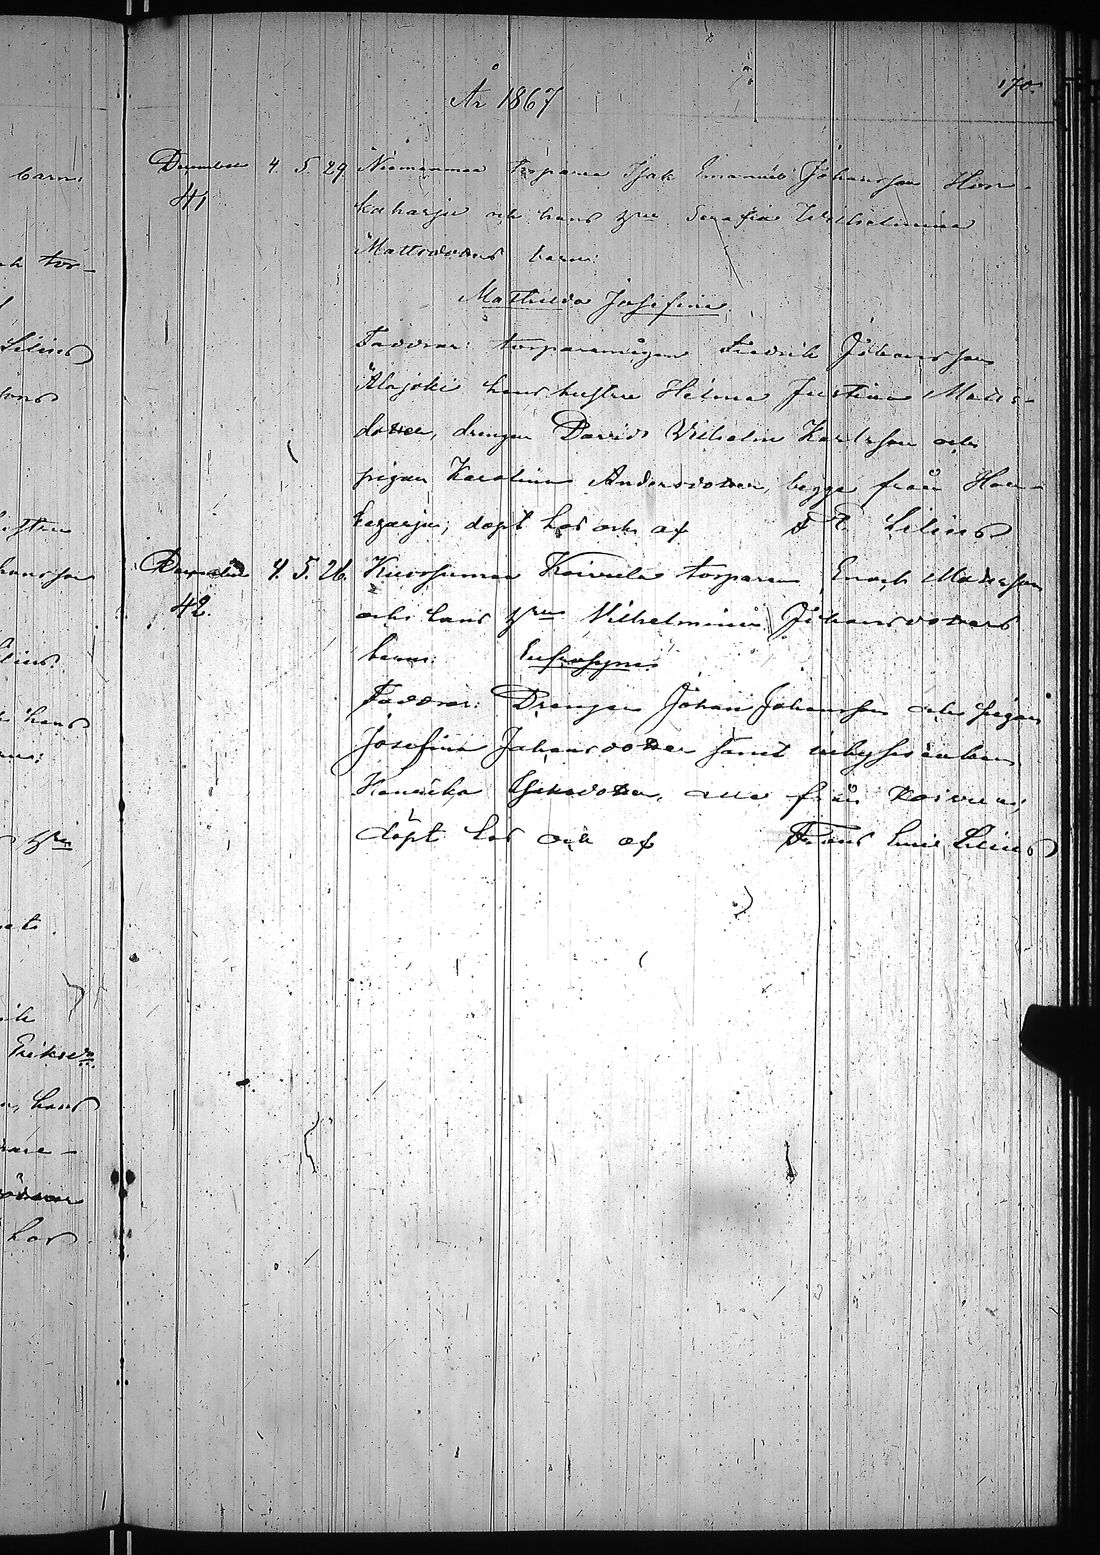 År 1867
170.
December 4. 5. 29 Niemenmaa torparen Isak Emanuel Johansson Hon-
41
kaharju och hans h:ru Serafia Wilhelmina
Mattsdotters barn:
Mathilda Josefina
Faddrar: torparemågen Fredrik Johansson
Alajoki hans hustru Helma Justina Matts-
dotter, drengen David Vilhelm Karlsson och
pigan Karolina Andersdotter, begge från Hon-
kaharju; döpt hos och af F E Lilius
December 4. 5. 26. Koivula torparen Enoch Mattsson
42.
och hans h:ru Vilhelmina Johansdotters
barn: Eufrosyne
Faddrar: Drengen Johan Johansson och pigan
Josefina Johansdotter samt inhyses enkan
Henrika Isaksdotter, alla från Koivula;
döpt hos och af Frans Emil Lilius
barn:
Lilius
Lilius
hans
h:ru
Eriksd:r
, hans
hos